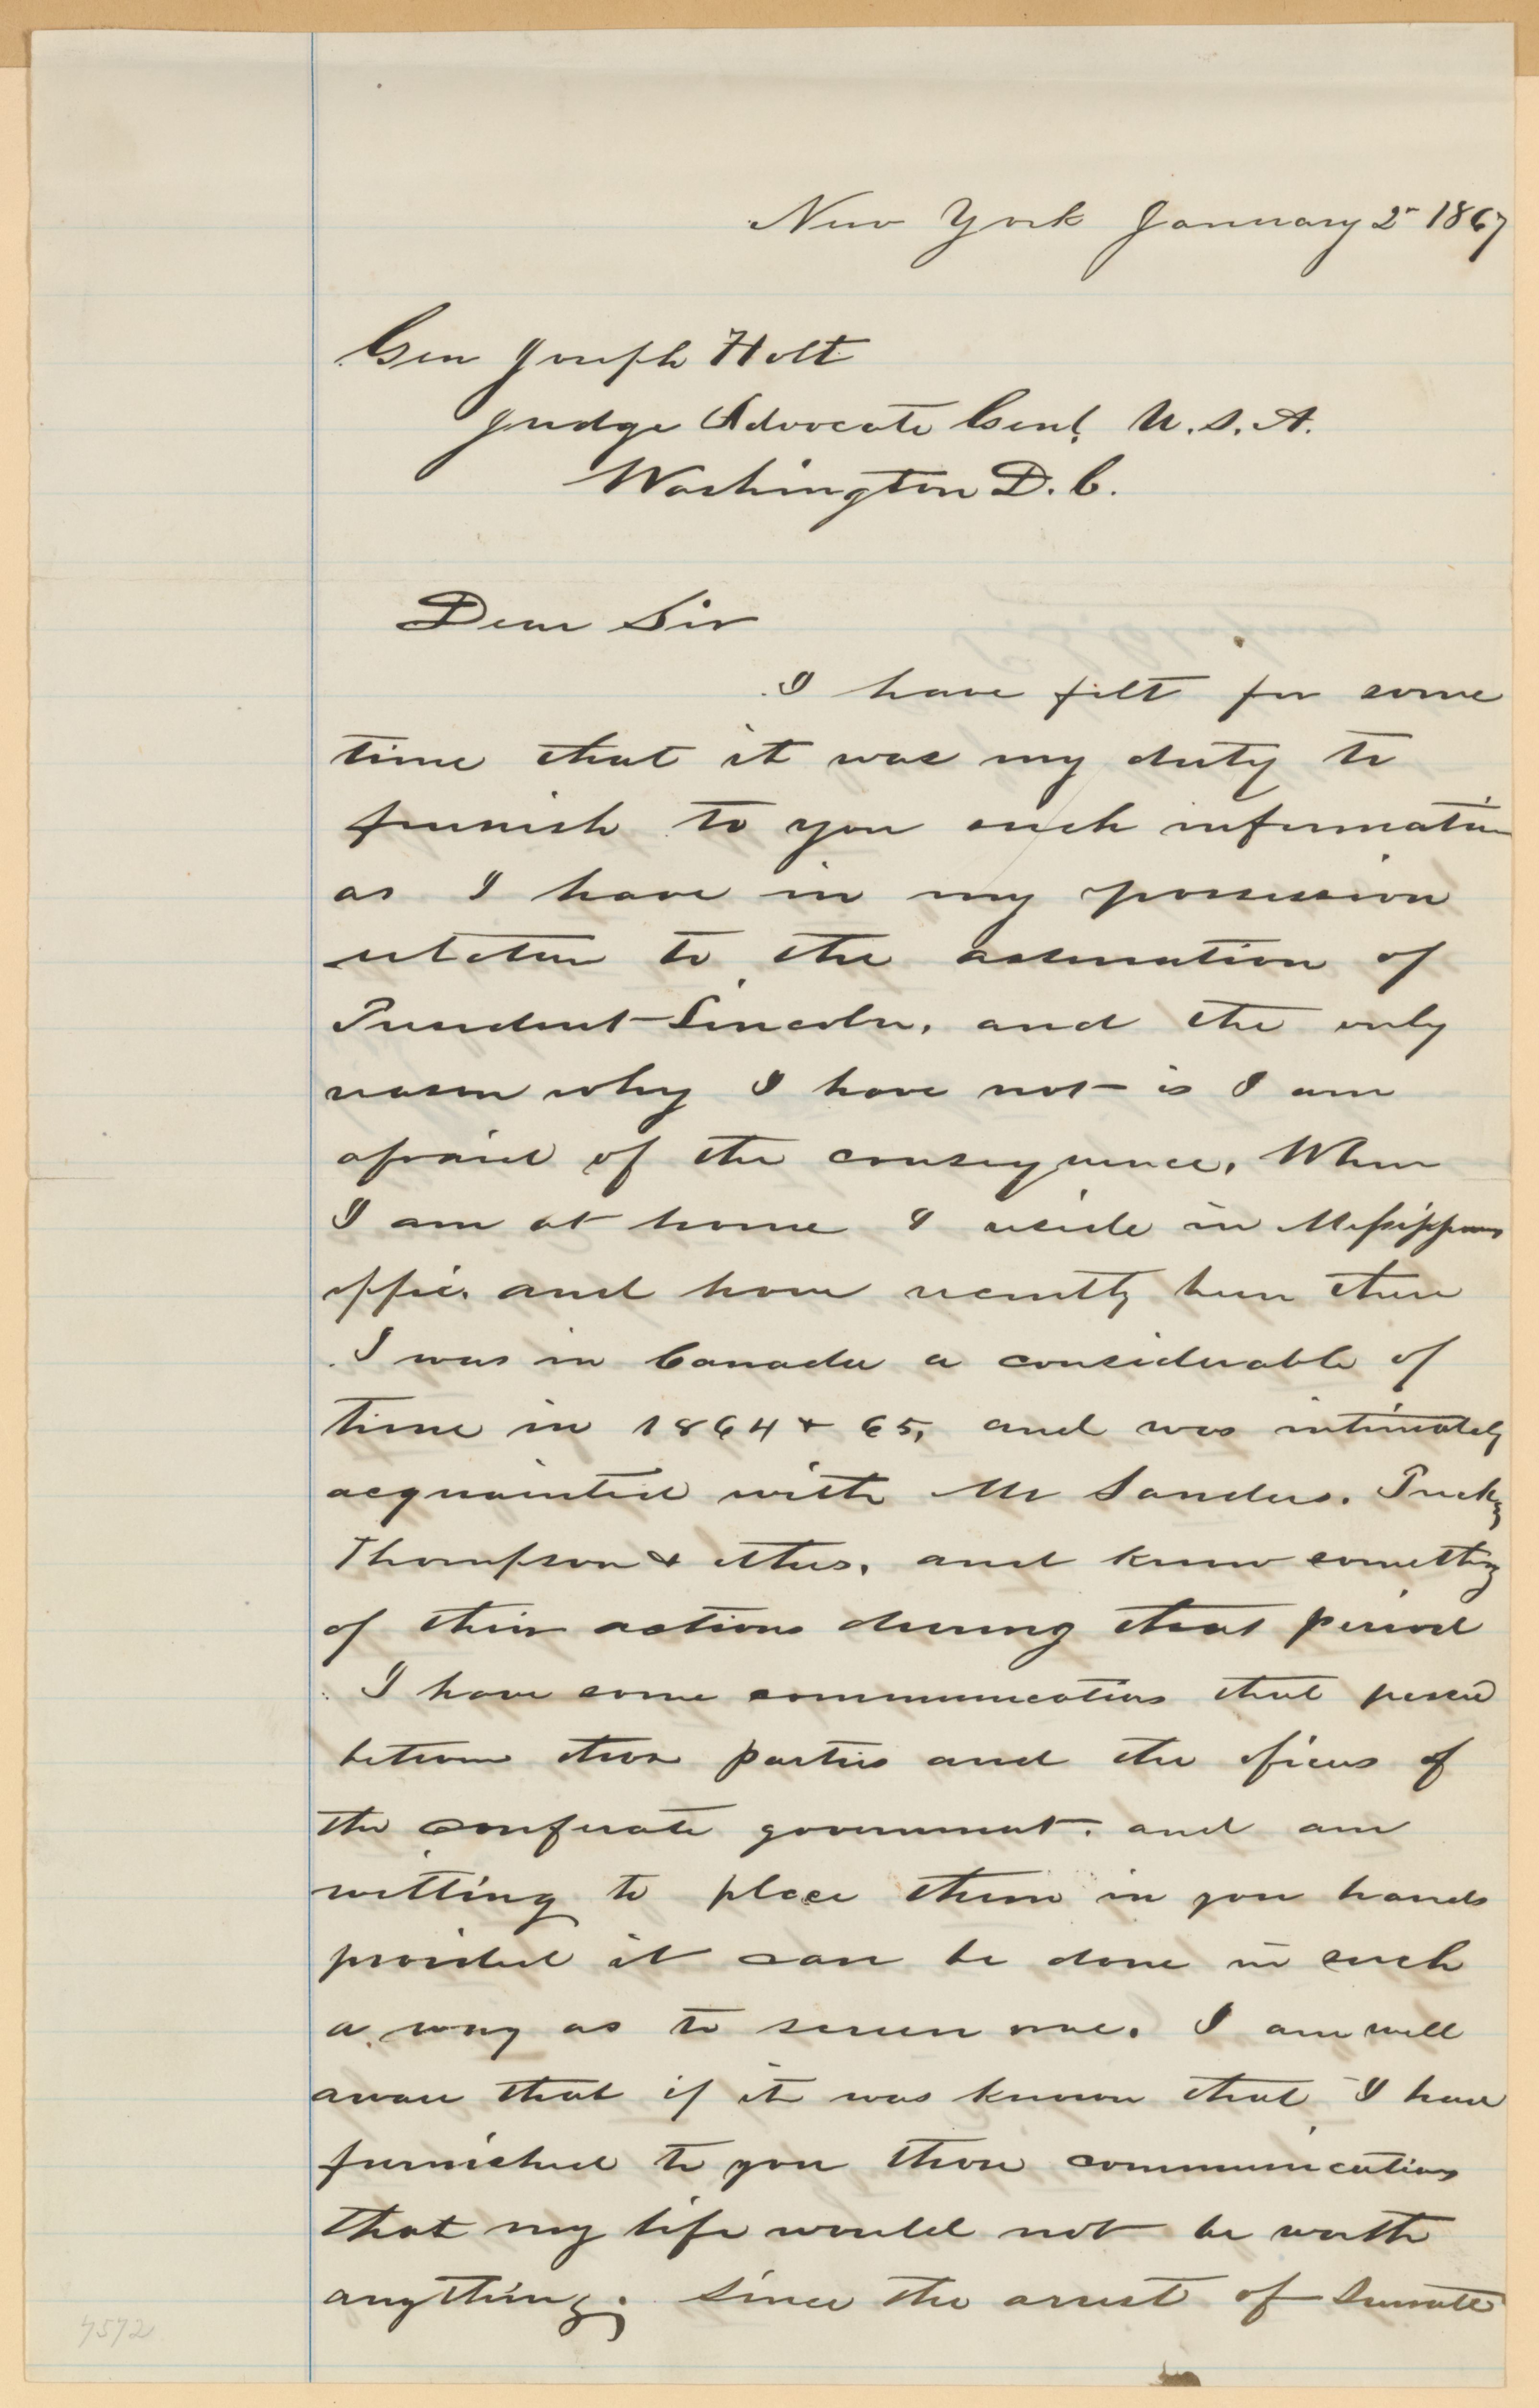 New York January 2" 1867
Gen Joseph Holt
Judge Advocate Genl. U.S.A.
Washington D.C.
Dear Sir
I have felt for some
time that it was my duty to
furnish to you such information
as I have in my possession
to the assination of
President Lincoln, and the only
reason why I have not is I am
afraid of the consequence. When
I am at home I reside in
and have recently been there
I was in Canada a considerable of
time in 1864 & 65, and was intimately
acquainted with Mr Sanders.
Thompson & others. and know something
of their actions during that period
I have some communications that
between these parties and the of
the government. and am
willing to place them in you hands
provided it can be done in such
a way as to screen me. I am well
aware that if it was known that I have
furnished to you these communications
that my life would not be worth
anything. Since the arrest of
7572